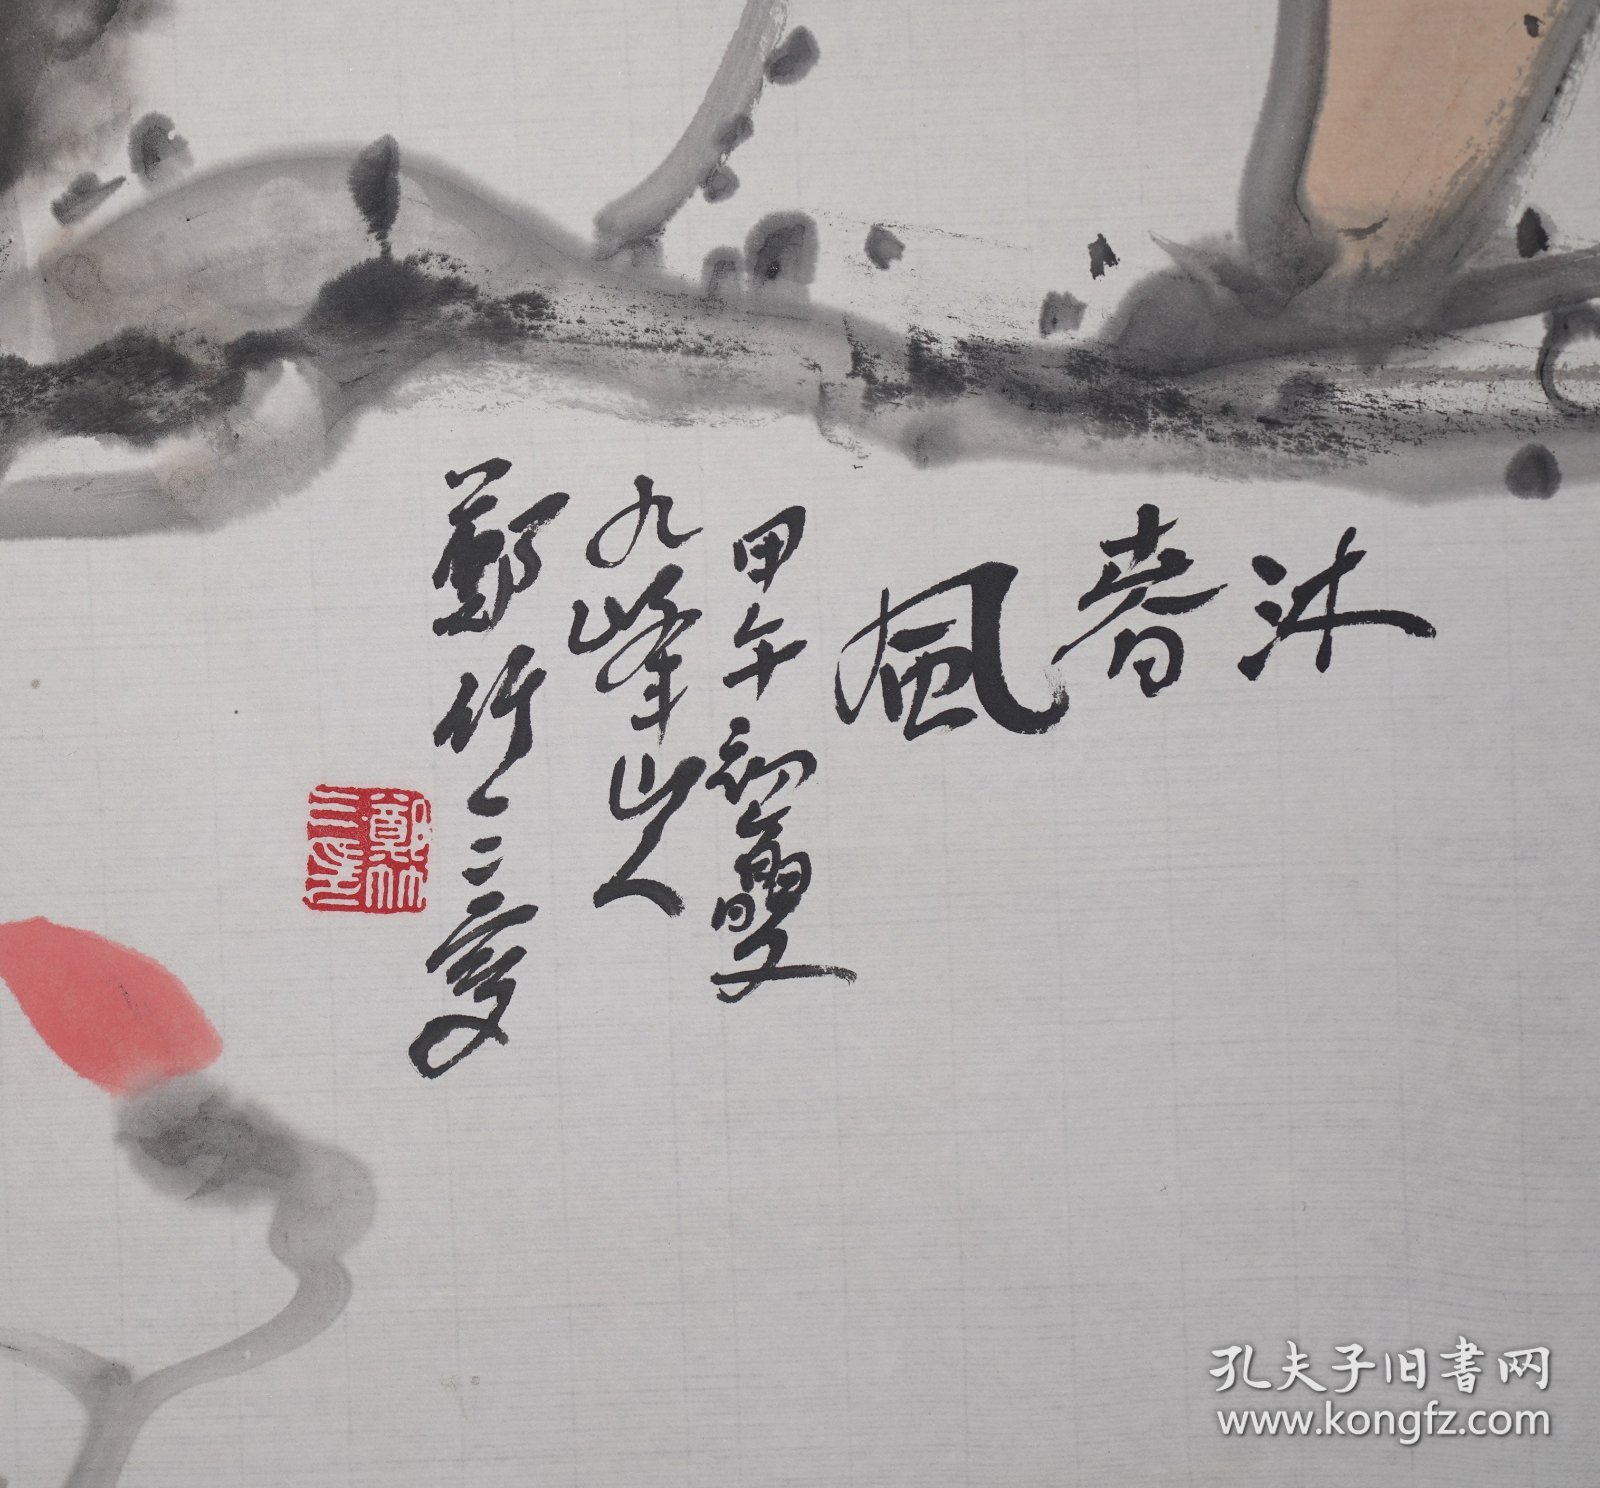 沐春風
甲午初夏
九峰山人
鄭竹三
孔夫子旧书网
www.kongfz.com